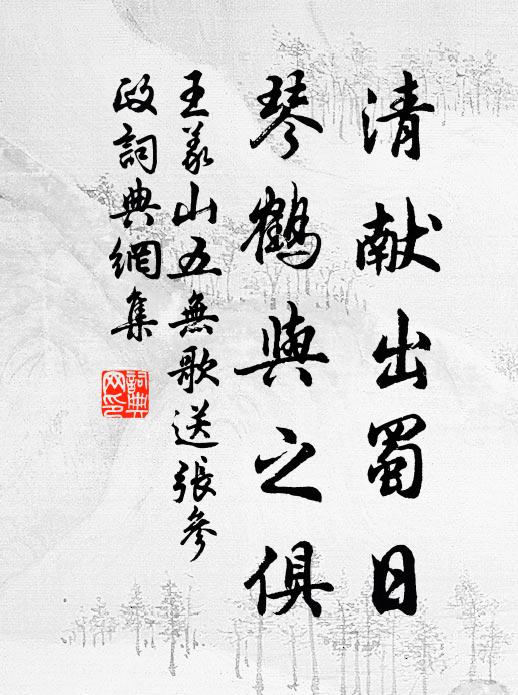 清献出蜀日
琴鶴與之俱
王義山五無歌送張參
政詞典網集
詞典
网印